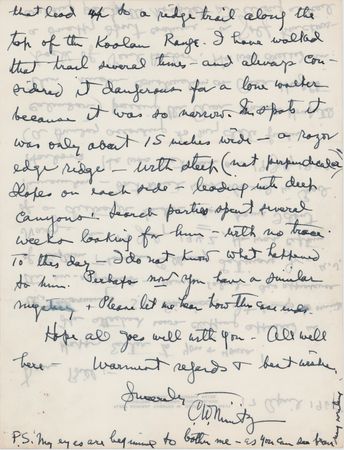 that lead up to a ridge trail along the
top of the Koolau Range. I have walked
that trail several times - and always con-
sidered it dangerous for a lone walker
because it was so narrow. In spots it
was only about 15 inches wide - a razor
edge ridge - with steep (not perpendicular)
slopes on each side - leading into deep
canyons. Search parties spent several
weeks looking for him - with no trace.
To this day - I do not know what happened
to him. Perhaps now you have a similar
mystery + Please let me hear how this case ends.
Hope all goes well with you - All well
here - Warmest regards & best wishes,
Sincerely
CWNimitz
P.S. My eyes are beginning to bother me - as you can see from
my writing